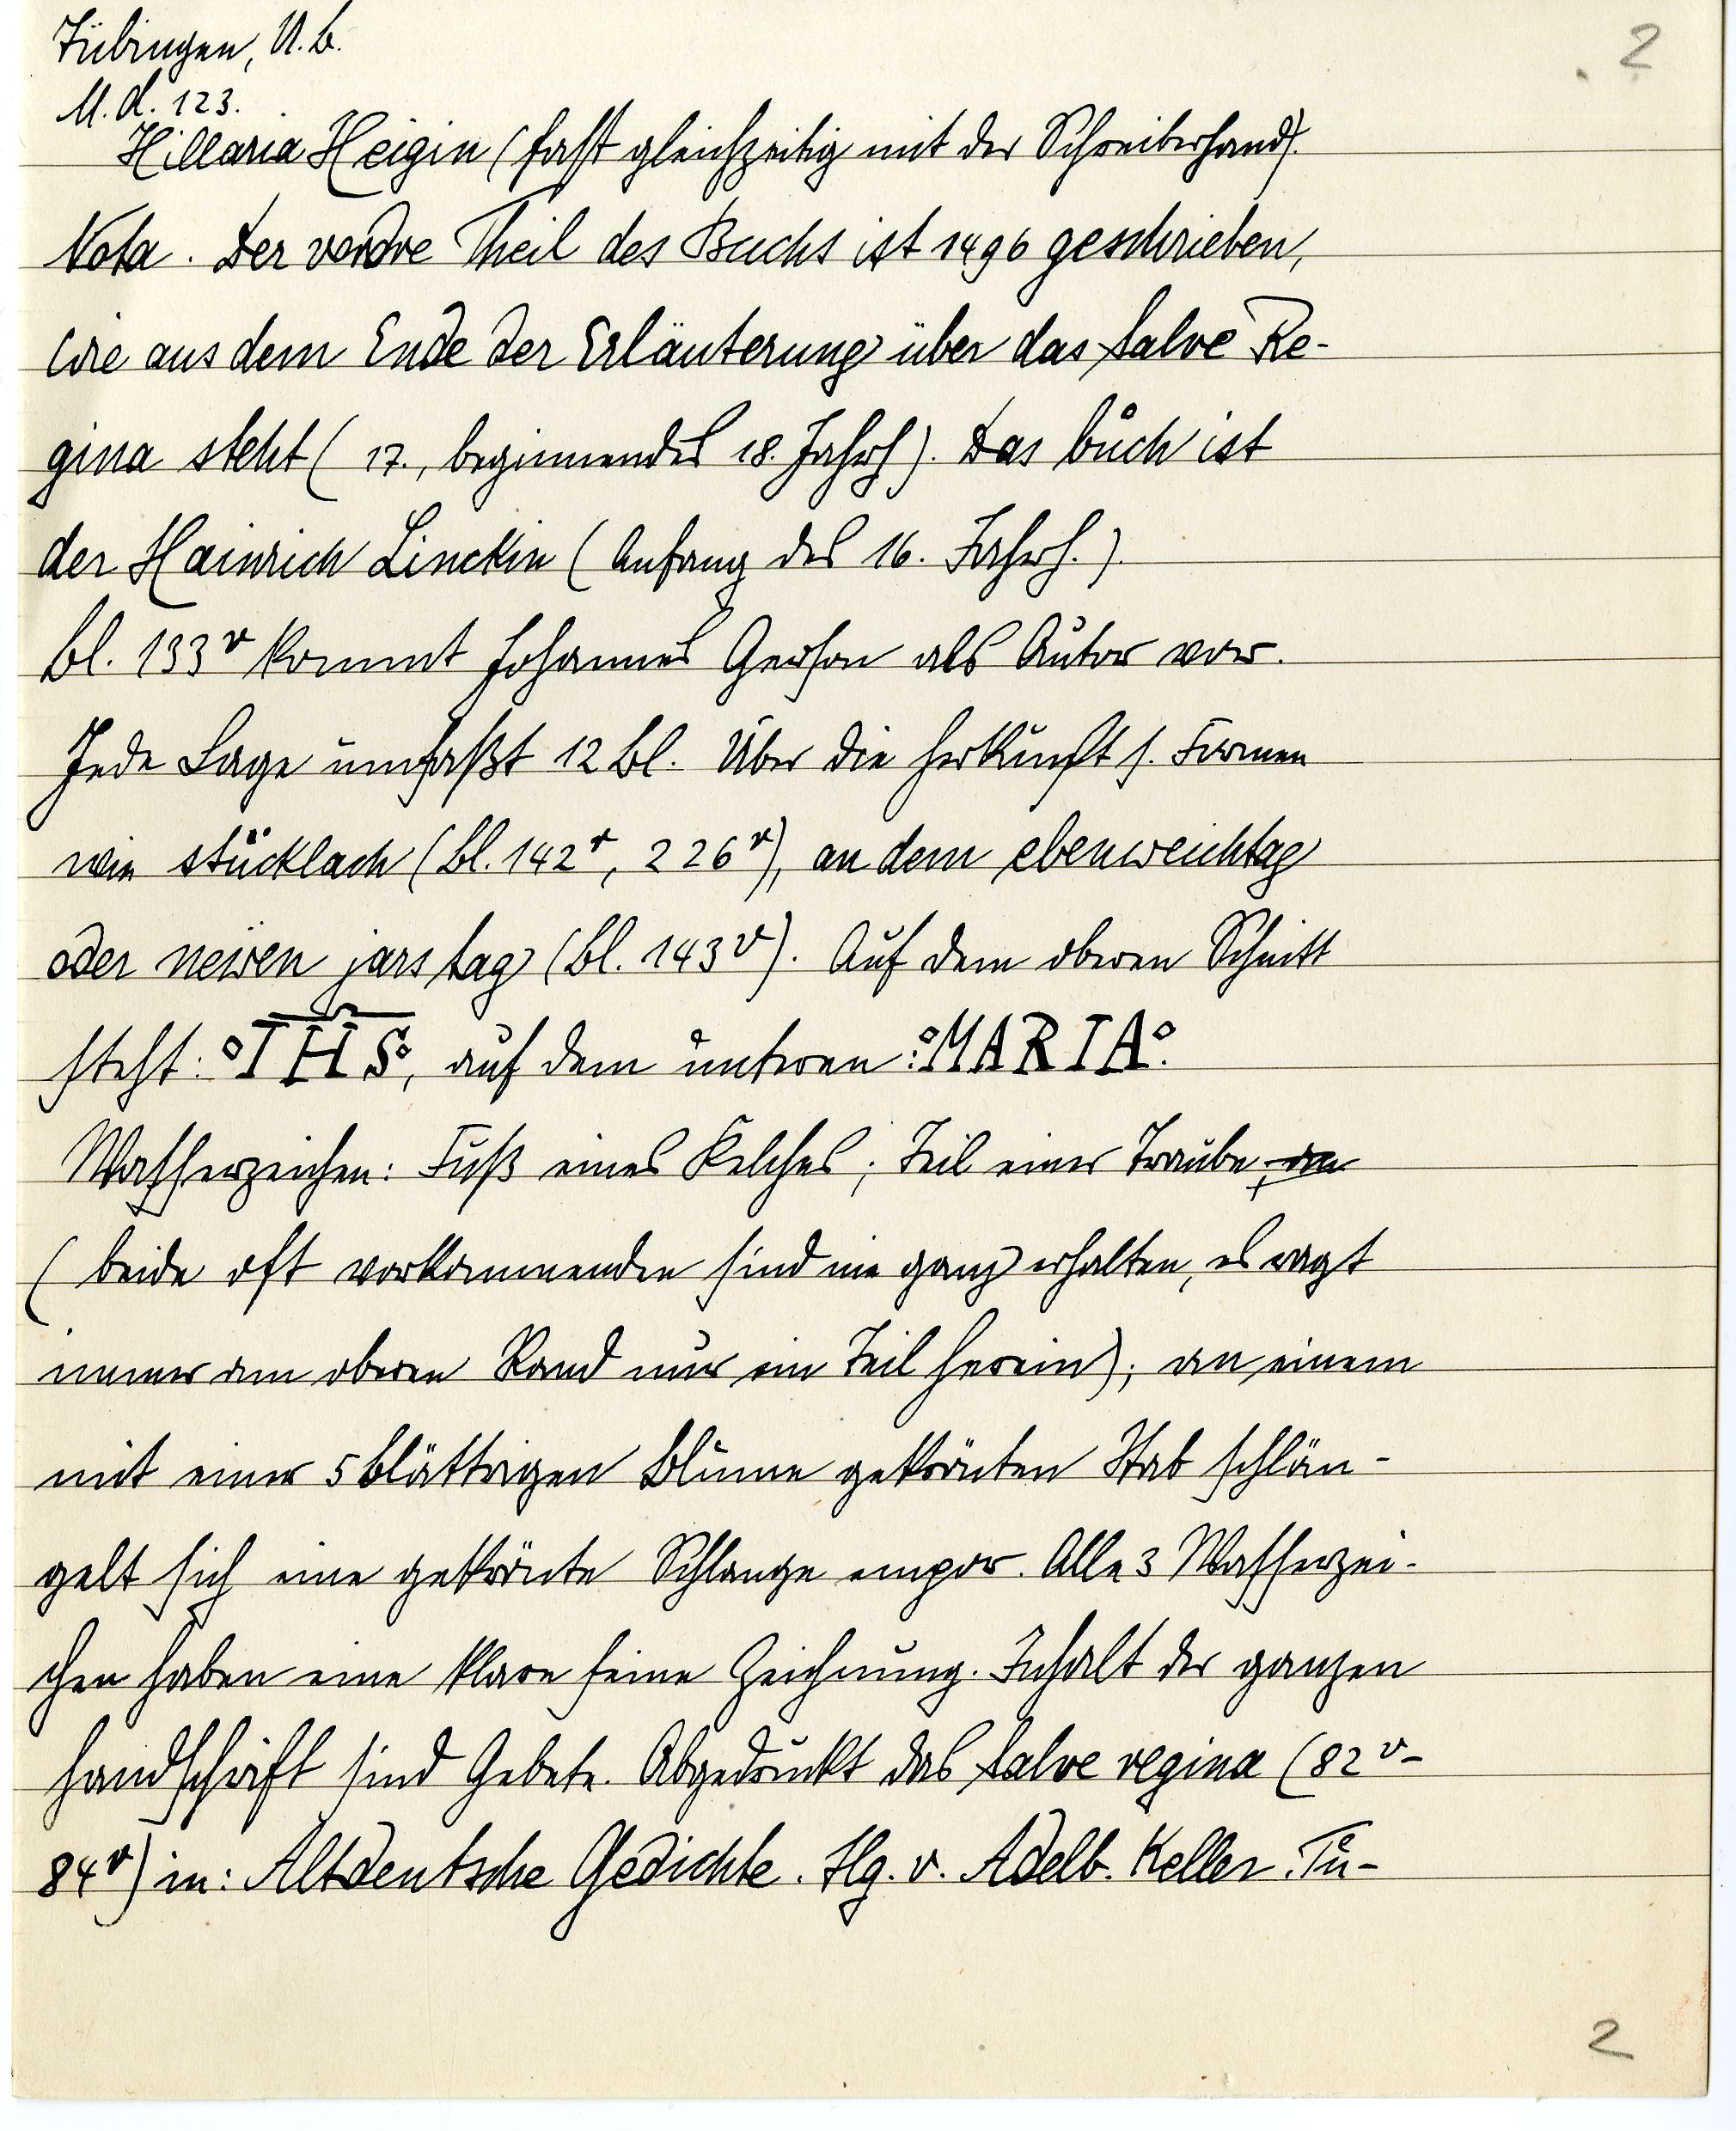 Tübingen, U.B.
2
M.d. 123.
Hillaria Heigin (fast gleichzeitig mit der Schreiberhand).
Nota. Der vordre Theil des Buchs ist 1496 geschrieben,
wie aus dem Ende der Erläuterung über das Salve Re-
gina steht (17., beginnendes 18. Jahrh). Das bůch ist
der Hainrich Linckin (Anfang des 16. Jahrh.).
Bl. 133v kommt Johannes Gerson als Autor vor.
Jede Lage umfaßt 12 Bl. Über die Herkunft s. Formen
wie stücklach (Bl. 142r, 226v), an dem ebenweichtag
oder newen jars tag (Bl. 143v). Auf dem oberen Schnitt
steht: °IHS°, auf dem unteren: °MARIA°.
Wasserzeichen: Fuß eines Kelches; Teil einer Traube, an
(beide oft vorkommenden sind nie ganz erhalten, es ragt
immer am oberen Rand nur ein Teil herein); an einem
mit einer 5blättrigen Blume gekrönten Stab schlän-
gelt sich eine gekrönte Schlange empor. Alle 3 Wasserzei-
chen haben eine klare feine Zeichnung. Inhalt der ganzen
Handschrift sind Gebete. Abgedruckt das Salve regina (82v-
84v) in: Altdeutsche Gedichte. Hg. v. Adelb. Keller. Tü-
2